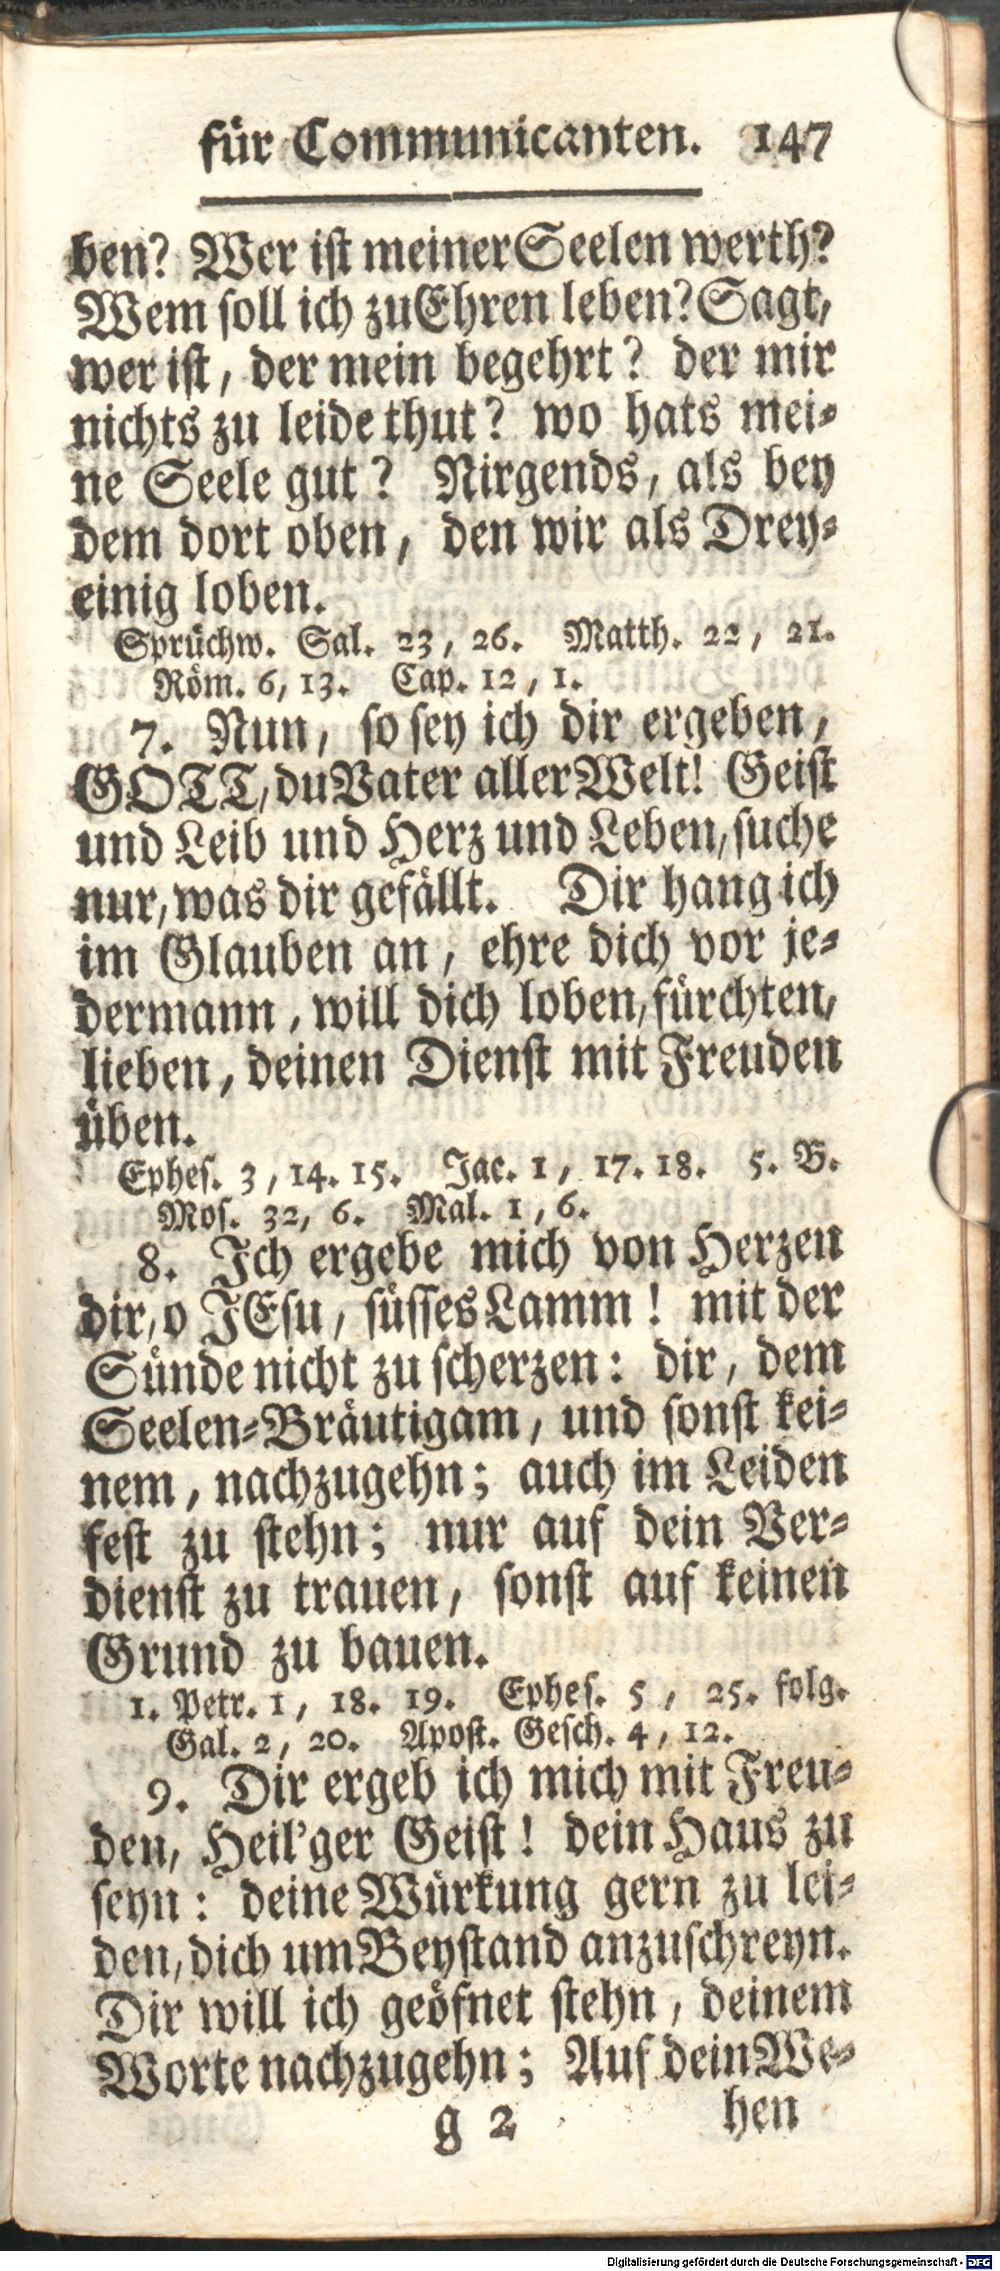 für Communicanten. 147
ben? Wer ist meiner Seelen werth?
Wem soll ich zu Ehren leben? Sagt,
wer ist, der mein begehrt? der mir
nichts zu leide thut? wo hats mei-
ne Seele gut? Nirgends, als bey
dem dort oben, den wir als Drey-
einig loben.
Sprüchw. Sal. 23, 26. Matth. 22, 21.
Röm. 6, 13. Cap. 12, 1.
7. Nun, so sey ich dir ergeben,
GOTT, du Vater aller Welt! Geist
und Leib und Herz und Leben, suche
nur, was dir gefällt. Dir hang ich
im Glauben an, ehre dich vor je-
dermann, will dich loben, fürchten,
lieben, deinen Dienst mit Freuden
üben.
Ephes. 3, 14. 15. Jac. 1, 17. 18. 5. B.
Mos. 32, 6. Mal. 1, 6.
8. Ich ergebe mich von Herzen
dir, o JEsu, süsses Lamm! mit der
Sünde nicht zu scherzen: dir, dem
Seelen-Bräutigam, und sonst kei-
nem, nachzugehn; auch im Leiden
fest zu stehn; nur auf dein Ver-
dienst zu trauen, sonst auf keinen
Grund zu bauen.
1. Petr. 1, 18. 19. Ephes. 5, 25. folg.
Gal. 2, 20. Apost. Gesch. 4, 12.
9. Dir ergeb ich mich mit Freu-
den, Heil'ger Geist! dein Haus zu
seyn: deine Würkung gern zu lei-
den, dich um Beystand anzuschreyn.
Dir will ich geöfnet stehn, deinem
Worte nachzugehn; Auf dein We-
g 2 hen
Digitalisierung gefördert durch die Deutsche Forschungsgemeinschaft - DFG